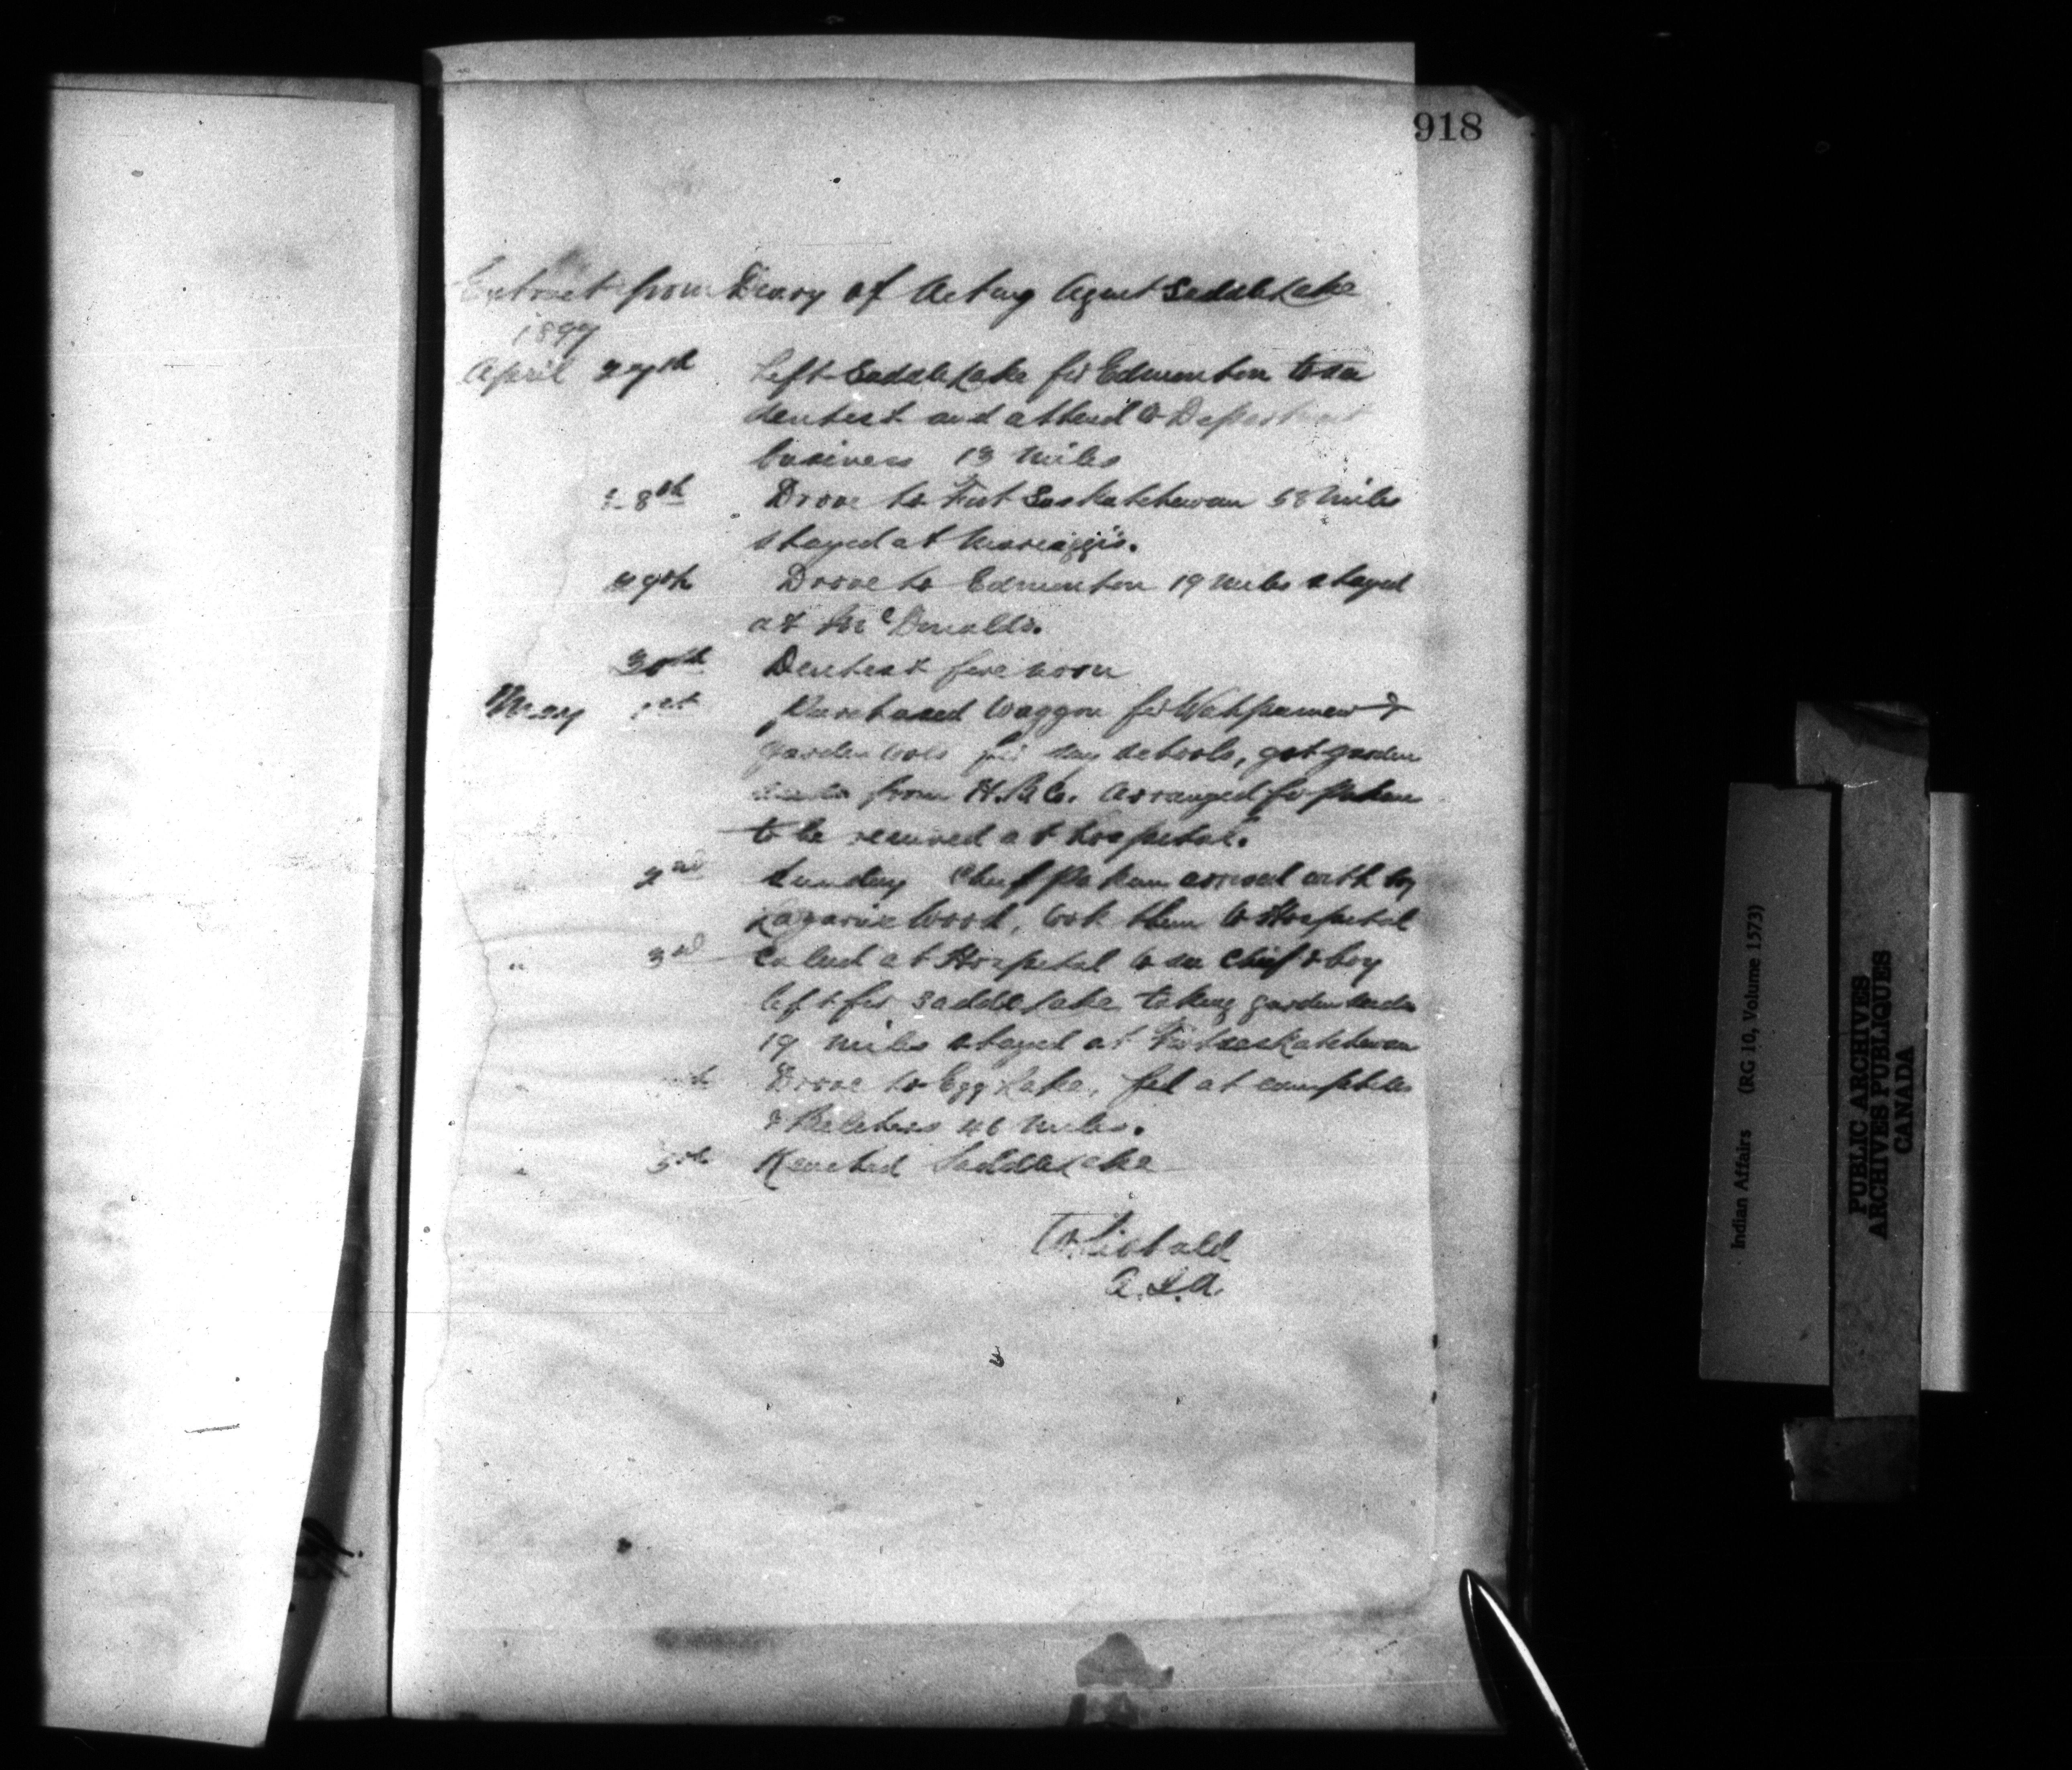 918
Extract from Diary of Acting Agent Saddle Lake
1897
April 27th Left Saddle Lake for Edmonton to see
dentist and attend to Department
business 13 miles
28th Drove to Fort Saskatchewan 58 miles
stayed at Mariaggi's.
29th Drove to Edmonton 19 miles stayed
at McDonalds.
30th Dentist forenoon
May 1st Purchased Waggon for Wahpumew &
garden tools for day schools, got garden
seeds from H.B.Co. arranged for Pakan
to be received at hospital.
" 2nd Sunday Chief Pakan arrived with boy
Lazarus Wood, took them to Hospital
" 3rd Called at Hospital to see Chief & boy
left for Saddle Lake taking garden seeds
19 miles stayed at Fort Saskatchewan
" th Drove to Egg Lake, fed at campbells
& Belchers 46 miles.
" 5th Reached Saddle Lake
Sibbald
A.I.A.
Indian Affairs (RG 10, Volume 1573)
PUBLIC ARCHIVES
ARCHIVES PUBLIQUES
CANADA